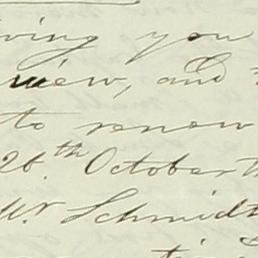 iving you
view, and
to renew
26th October th
Mr Schmidt